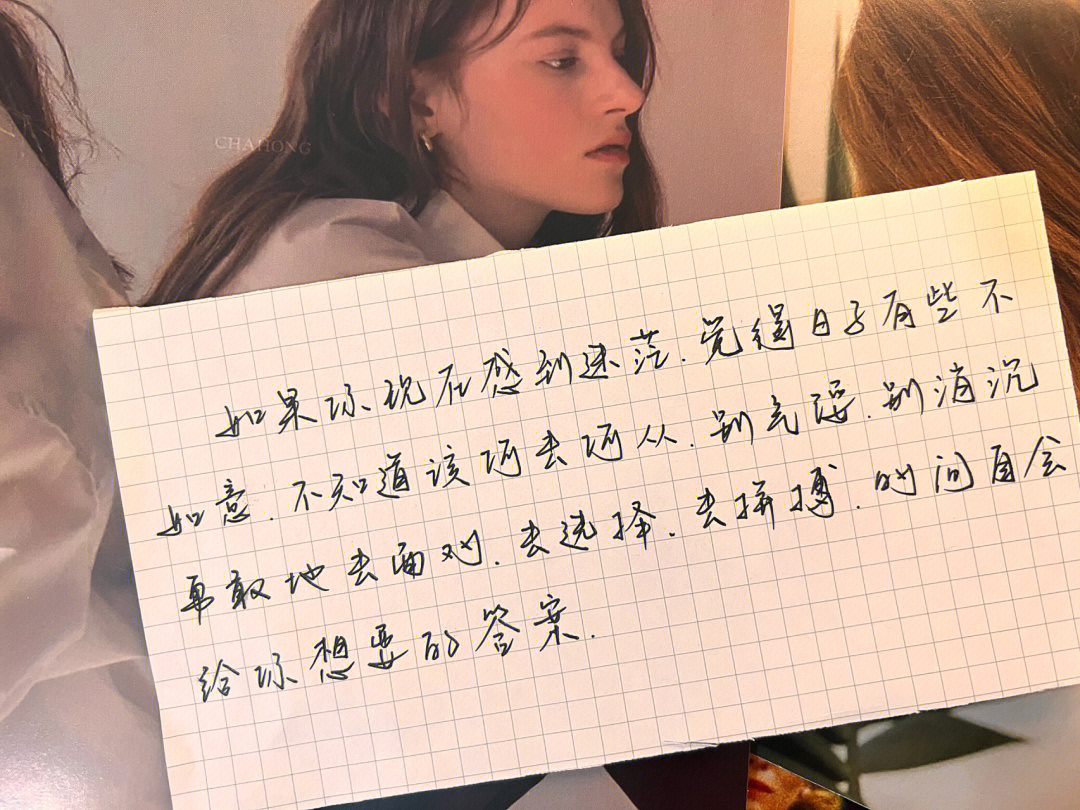 CHAHONG
如果你现在感到迷茫.觉得日子有些不
如意.不知道该何去何从.别气馁.别消沉
勇敢地去面对.去选择.去拼搏.时间自会
给你想要的答案.